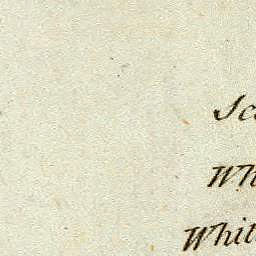 Sc
Wh
Whit